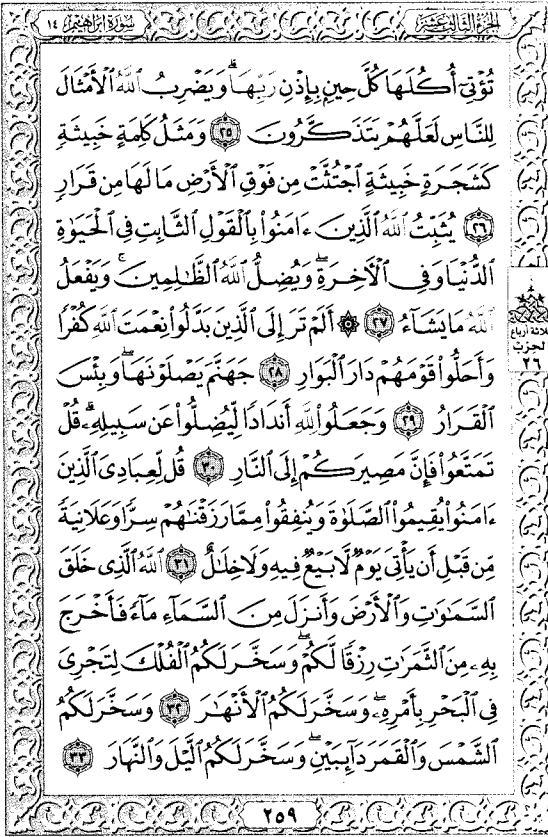 الجزء الثالث عشر
سورة إبراهيم ١٤
تُؤْتِىٓ أُكُلَهَا كُلَّ حِينٍۭ بِإِذْنِ رَبِّهَاۗ وَيَضْرِبُ ٱللَّهُ ٱلْأَمْثَالَ
لِلنَّاسِ لَعَلَّهُمْ يَتَذَكَّرُونَ ٢٥ وَمَثَلُ كَلِمَةٍ خَبِيثَةٍ
كَشَجَرَةٍ خَبِيثَةٍ ٱجْتُثَّتْ مِن فَوْقِ ٱلْأَرْضِ مَا لَهَا مِن قَرَارٍ
٢٦ يُثَبِّتُ ٱللَّهُ ٱلَّذِينَ ءَامَنُوا۟ بِٱلْقَوْلِ ٱلثَّابِتِ فِى ٱلْحَيَوٰةِ
ٱلدُّنْيَا وَفِى ٱلْءَاخِرَةِۖ وَيُضِلُّ ٱللَّهُ ٱلظَّٰلِمِينَۚ وَيَفْعَلُ
ٱللَّهُ مَا يَشَآءُ ٢٧ ۞ أَلَمْ تَرَ إِلَى ٱلَّذِينَ بَدَّلُوا۟ نِعْمَتَ ٱللَّهِ كُفْرًا
وَأَحَلُّوا۟ قَوْمَهُمْ دَارَ ٱلْبَوَارِ ٢٨ جَهَنَّمَ يَصْلَوْنَهَاۖ وَبِئْسَ
ٱلْقَرَارُ ٢٩ وَجَعَلُوا۟ لِلَّهِ أَندَادًا لِّيُضِلُّوا۟ عَن سَبِيلِهِۦۗ قُلْ
تَمَتَّعُوا۟ فَإِنَّ مَصِيرَكُمْ إِلَى ٱلنَّارِ ٣٠ قُل لِّعِبَادِىَ ٱلَّذِينَ
ءَامَنُوا۟ يُقِيمُوا۟ ٱلصَّلَوٰةَ وَيُنفِقُوا۟ مِمَّا رَزَقْنَٰهُمْ سِرًّا وَعَلَانِيَةً
مِّن قَبْلِ أَن يَأْتِىَ يَوْمٌ لَّا بَيْعٌ فِيهِ وَلَا خِلَٰلٌ ٣١ ٱللَّهُ ٱلَّذِى خَلَقَ
ٱلسَّمَٰوَٰتِ وَٱلْأَرْضَ وَأَنزَلَ مِنَ ٱلسَّمَآءِ مَآءً فَأَخْرَجَ
بِهِۦ مِنَ ٱلثَّمَرَٰتِ رِزْقًا لَّكُمْۖ وَسَخَّرَ لَكُمُ ٱلْفُلْكَ لِتَجْرِىَ
فِى ٱلْبَحْرِ بِأَمْرِهِۦۖ وَسَخَّرَ لَكُمُ ٱلْأَنْهَٰرَ ٣٢ وَسَخَّرَ لَكُمُ
ٱلشَّمْسَ وَٱلْقَمَرَ دَآئِبَيْنِۖ وَسَخَّرَ لَكُمُ ٱلَّيْلَ وَٱلنَّهَارَ ٣٣
ثلاثة أرباع
الحزب
٢٦
٢٥٩